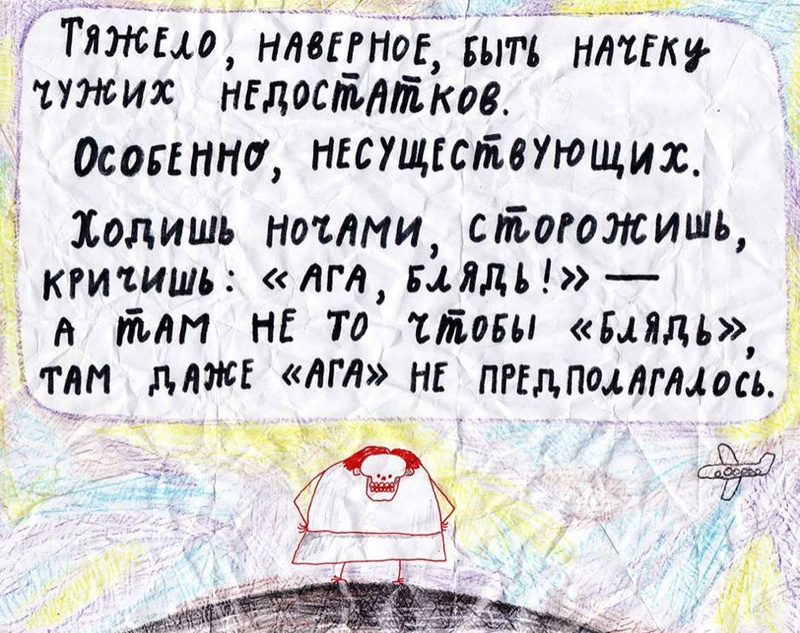 Тяжело, наверное, быть начеку
чужих недостатков.
Особенно, несуществующих.
Ходишь ночами, сторожишь,
кричишь: «Ага, блядь!» —
а там не то чтобы «блядь»,
там даже «ага» не предполагалось.